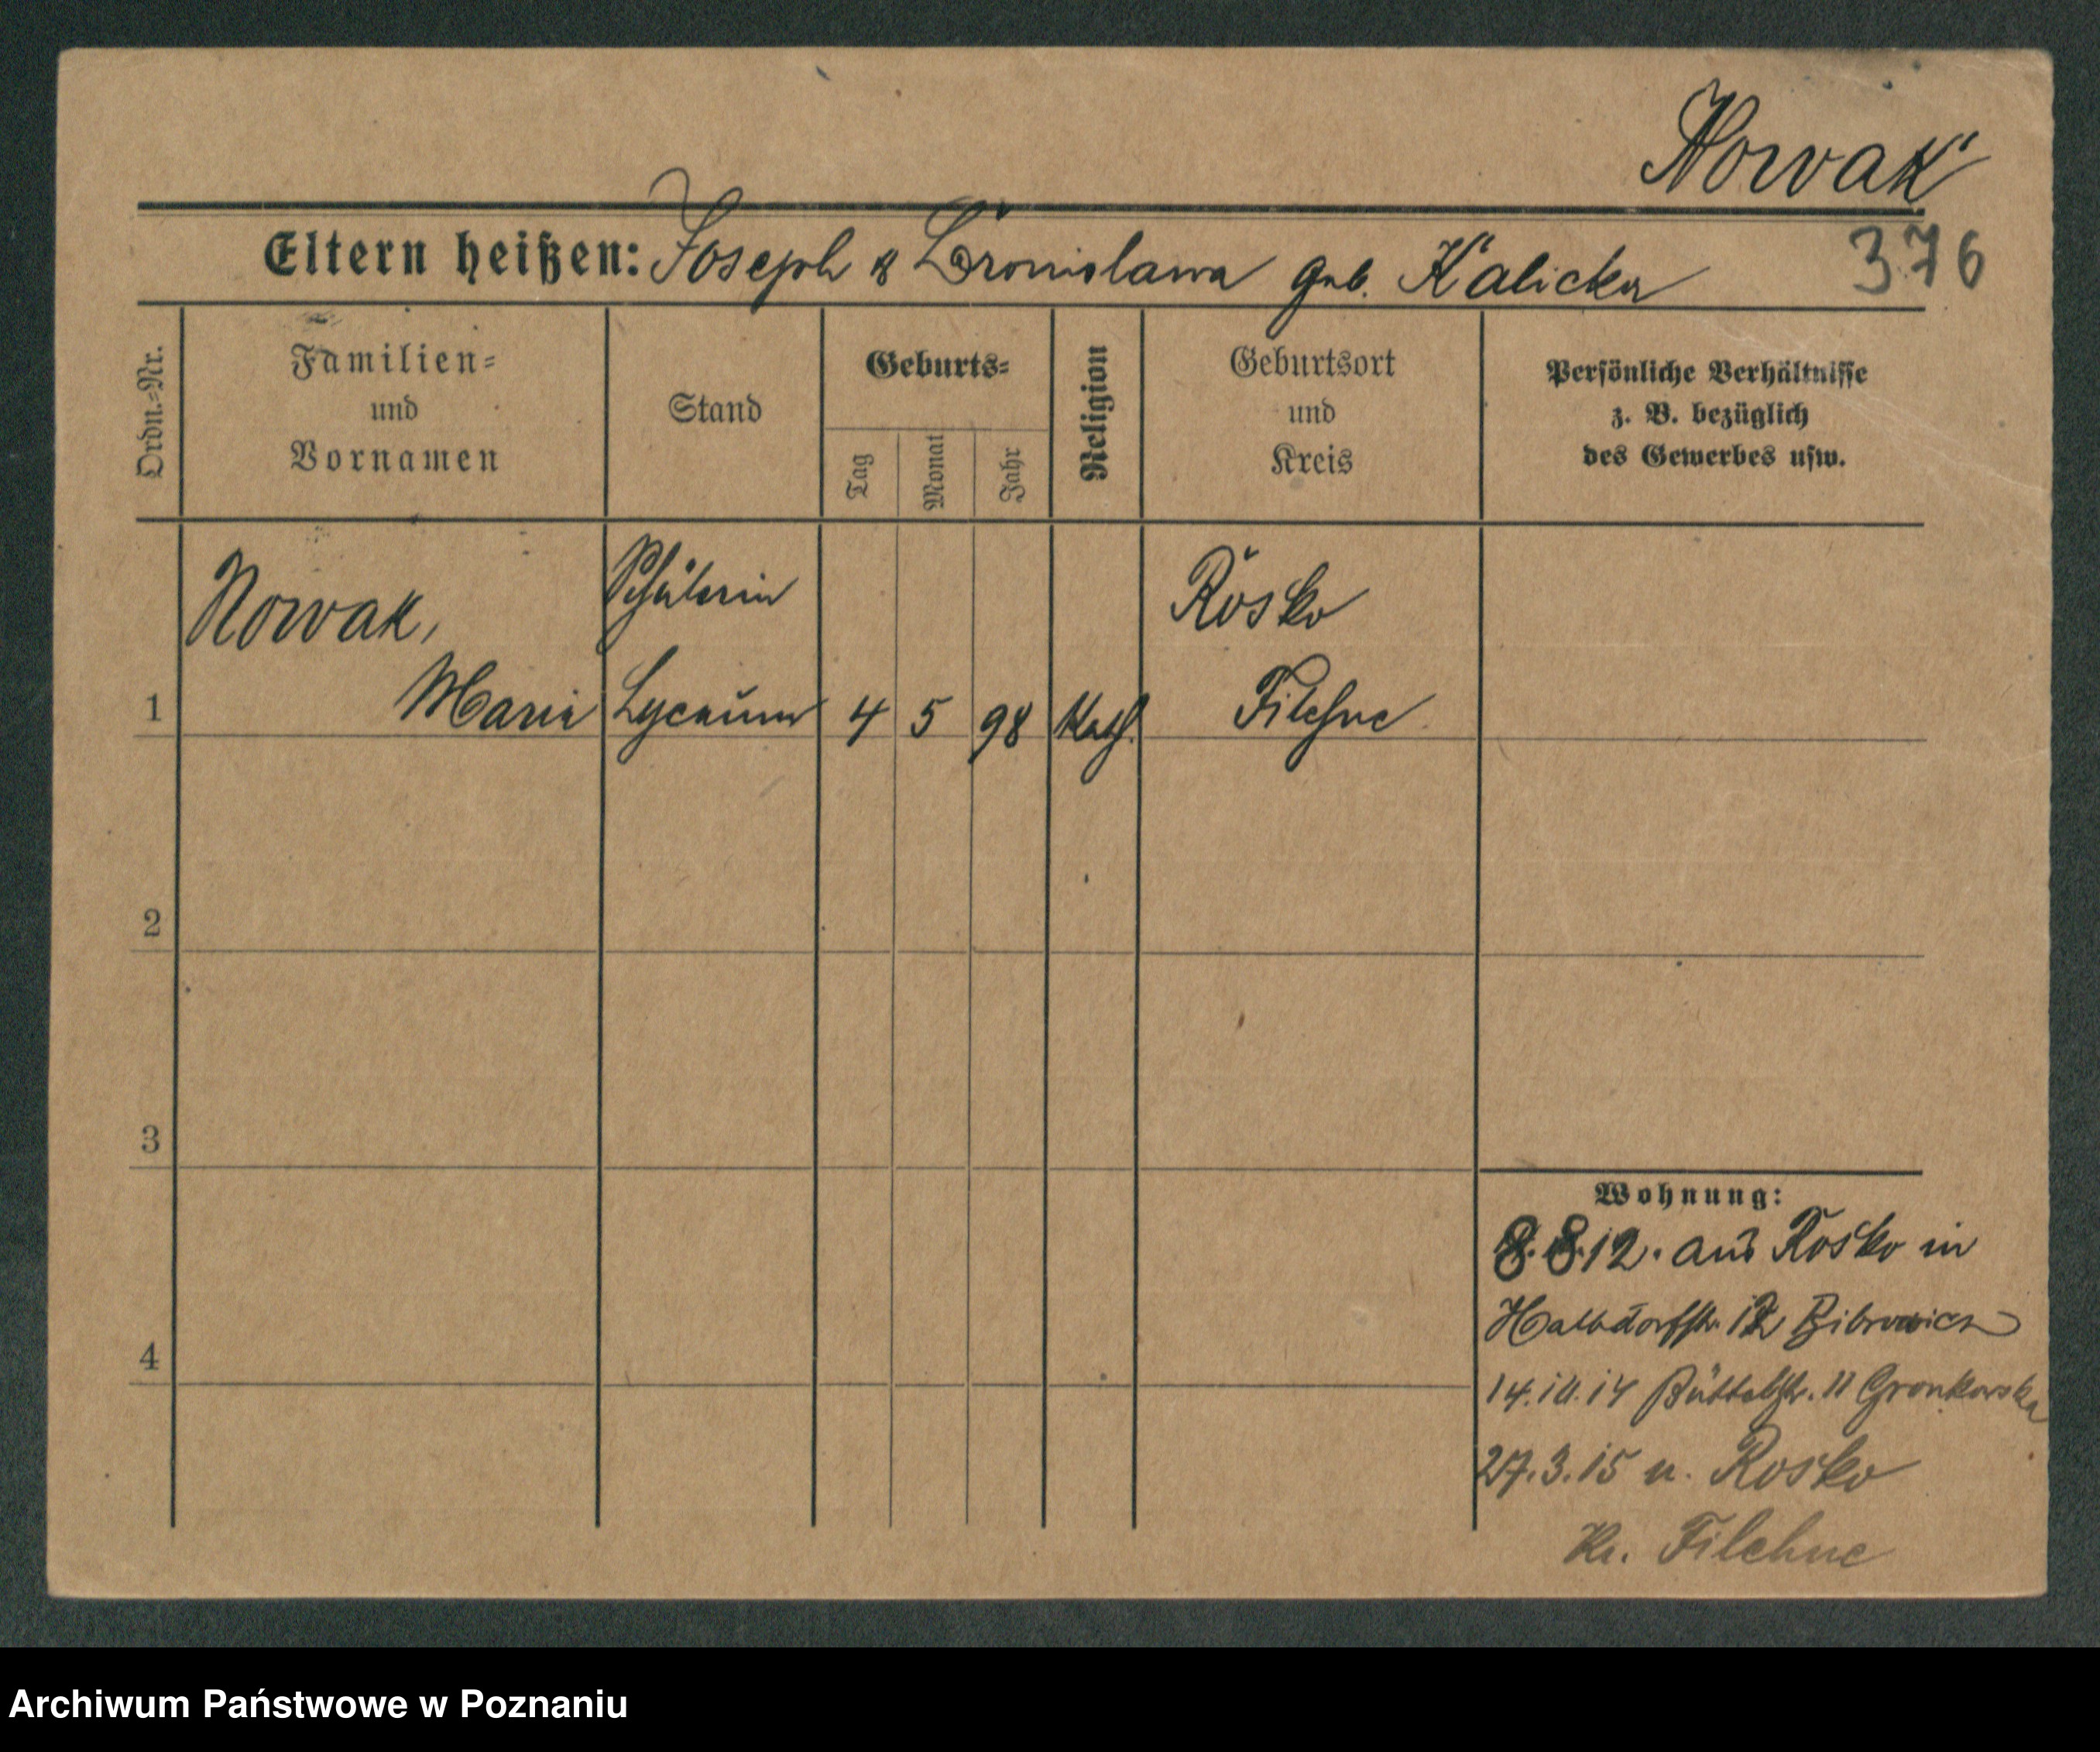 Nowak
Eltern heißen: Joseph & Bronislawa geb. Kalicka
376
Ordn.=Nr.
Familien=
und
Vornamen
Stand
Geburts=
Tag
Monat
Jahr
Religion
Geburtsort
und
Kreis
Persönliche Verhältnisse
z. B. bezüglich
des Gewerbes usw.
Nowak,
Schülerin
Rosko
1
Maria
Lyceum
4
5
98
Kath.
Filehne
2
3
4
Wohnung:
8.8.12. aus Rosko in
Halbdorfstr.
14.10.14 Büttelstr. 11 Gronkowska
27.3.15 n. Rosko
Kr. Filehne
Archiwum Państwowe w Poznaniu